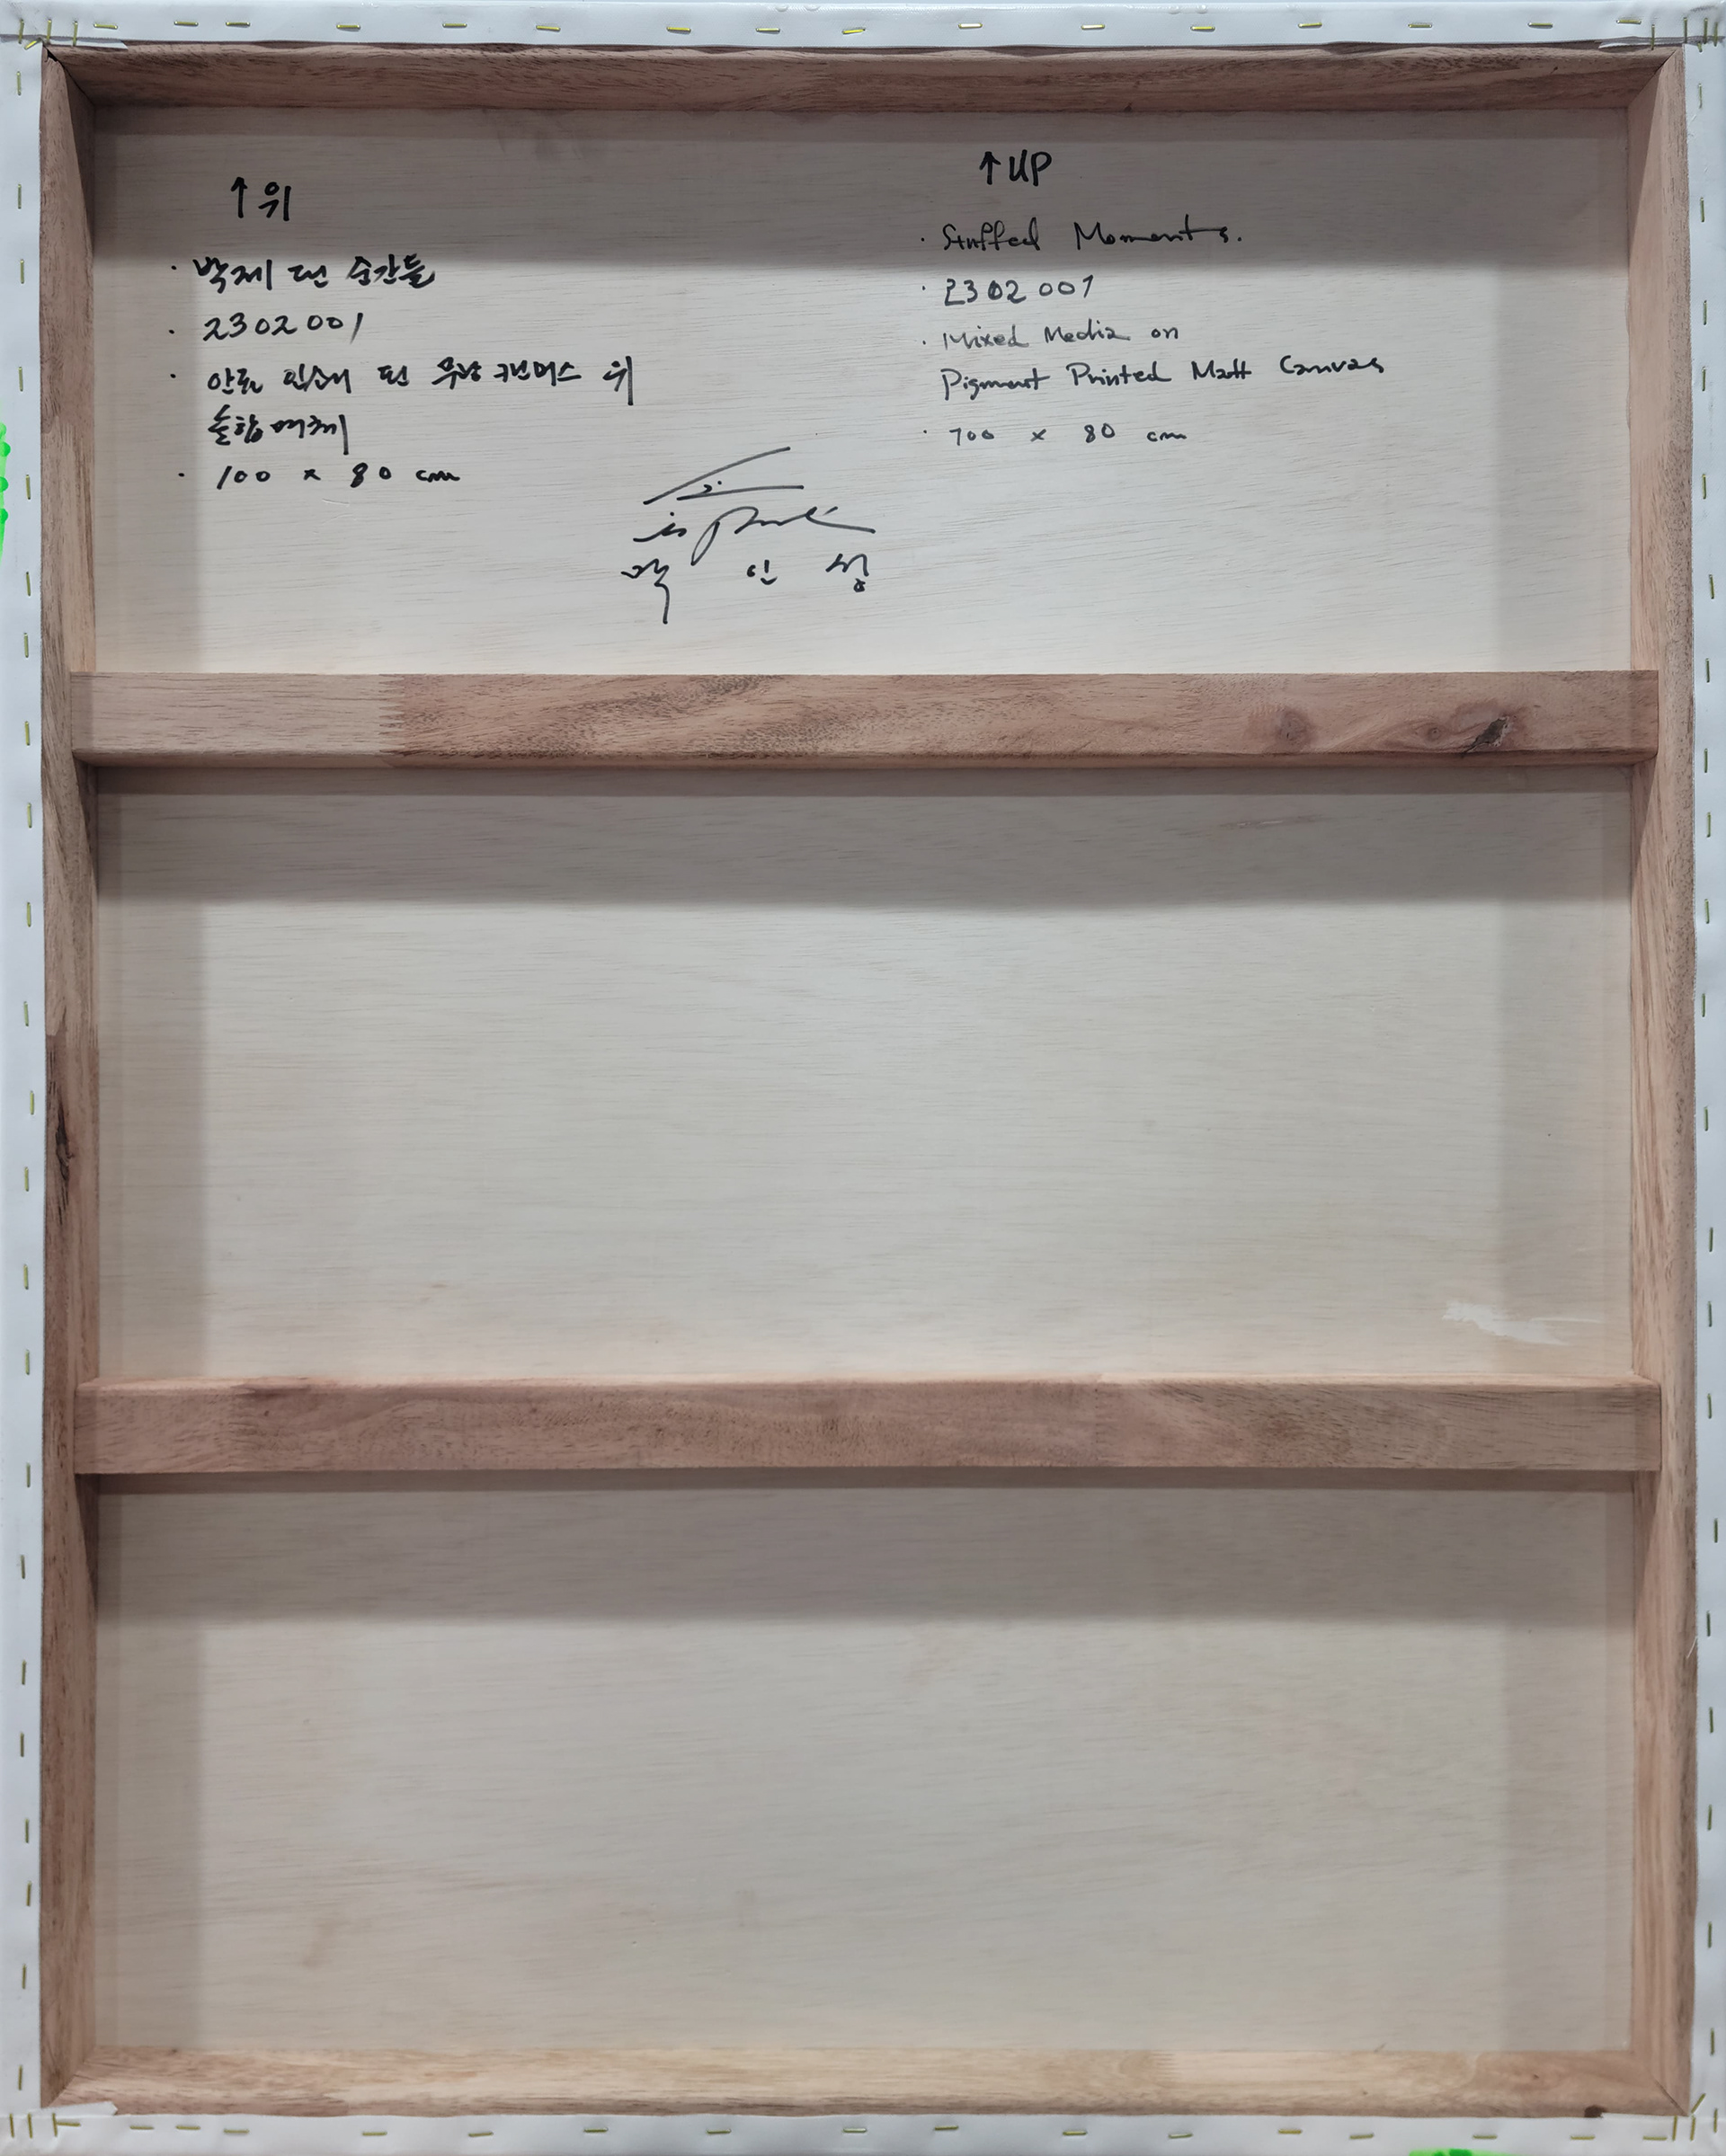 ↑위
· 박제 된 순간들
· 2302001
· 안료 인쇄 된 무광 캔버스 위
혼합매체
· 100 x 80 cm
↑UP
· Stuffed Moments.
· 2302001
· Mixed Media on
Pigment Printed Matt Canvas
· 100 x 80 cm
is park
박 인 성